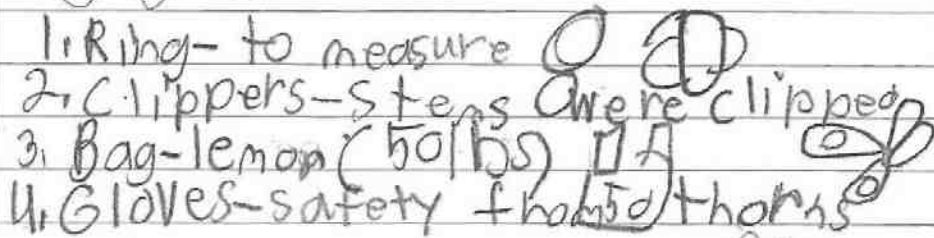 1. Ring- to measure
2. Clippers-stems were clipped
3. Bag-lemon (50lbs) 50
4. Gloves-safety from thorns